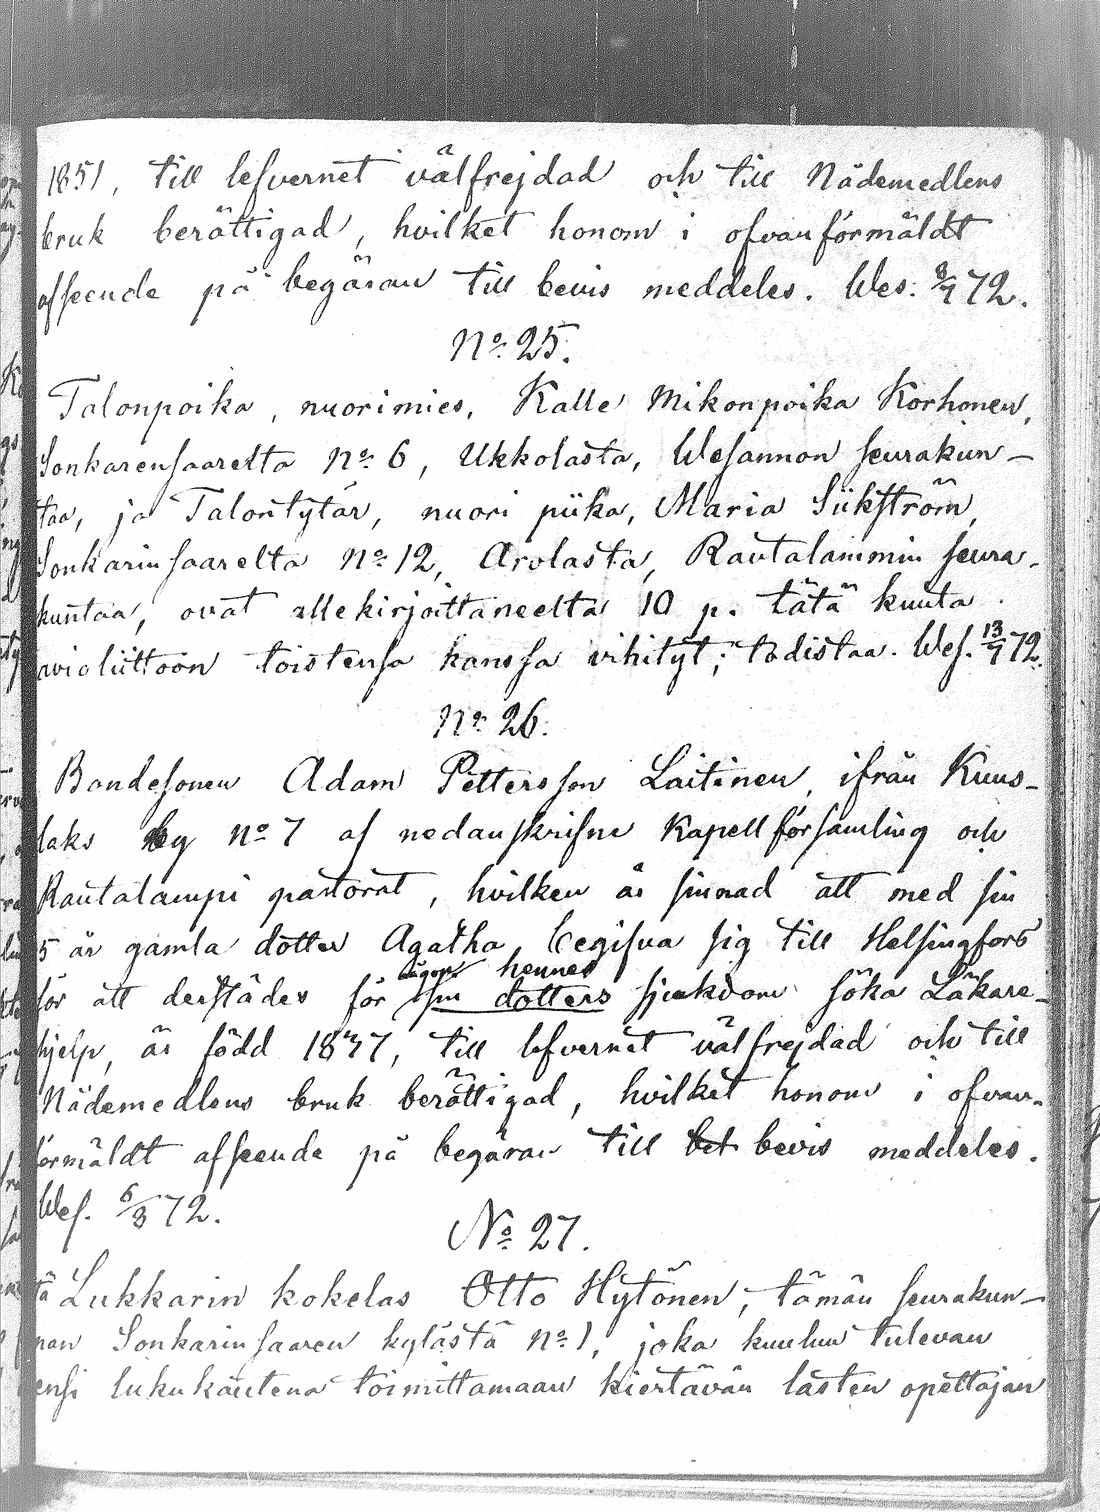 1851, till lefvernet välfrejdad och till Nådemedlens
bruk berättigad, hvilket honom i ofvanförmäldt
afseende på begäran till bevis meddeles. Wes. 8/7 72.
No 25.
Talonpoika, nuorimies, Kalle Mikonpoika Korhonen,
Sonkarensaarelta No 6, Ukkolasta, Wesannon seurakun-
taa, ja Talontytär, nuori piika, Maria Siikström,
Sonkarinsaarelta No 12, Arolasta, Rautalammin seura-
kuntaa, ovat allekirjoittaneelta 10 p. tätä kuuta
avioliittoon toistensa kanssa vihityt; todistaa. Wes. 13/7 72.
No 26.
Bondesonen Adam Pettersson Laitinen, ifrån Kuus-
laks by No 7 af nedanskrifne Kapellförsamling och
Rautalampi pastorat, hvilken är sinnad att med sin
5 år gamla dotter Agatha, begifva sig till Helsingfors
hennes
för att derstädes för sin dotters sjukdom söka Läkare-
hjelp, är född 1837, till lefvernet välfrejdad och till
Nådemedlens bruk berättigad, hvilket honom i ofvan-
förmäldt afseende på begäran till bet bevis meddeles.
Wes. 5/8 72.
No 27.
tä Lukkarin kokelas Otto Hytönen, tämän seurakun-
nan Sonkarinsaaren kylästä No 1, joka kuuluu tulevan
ensi lukukautena toimittamaan kiertävän lasten opettajan